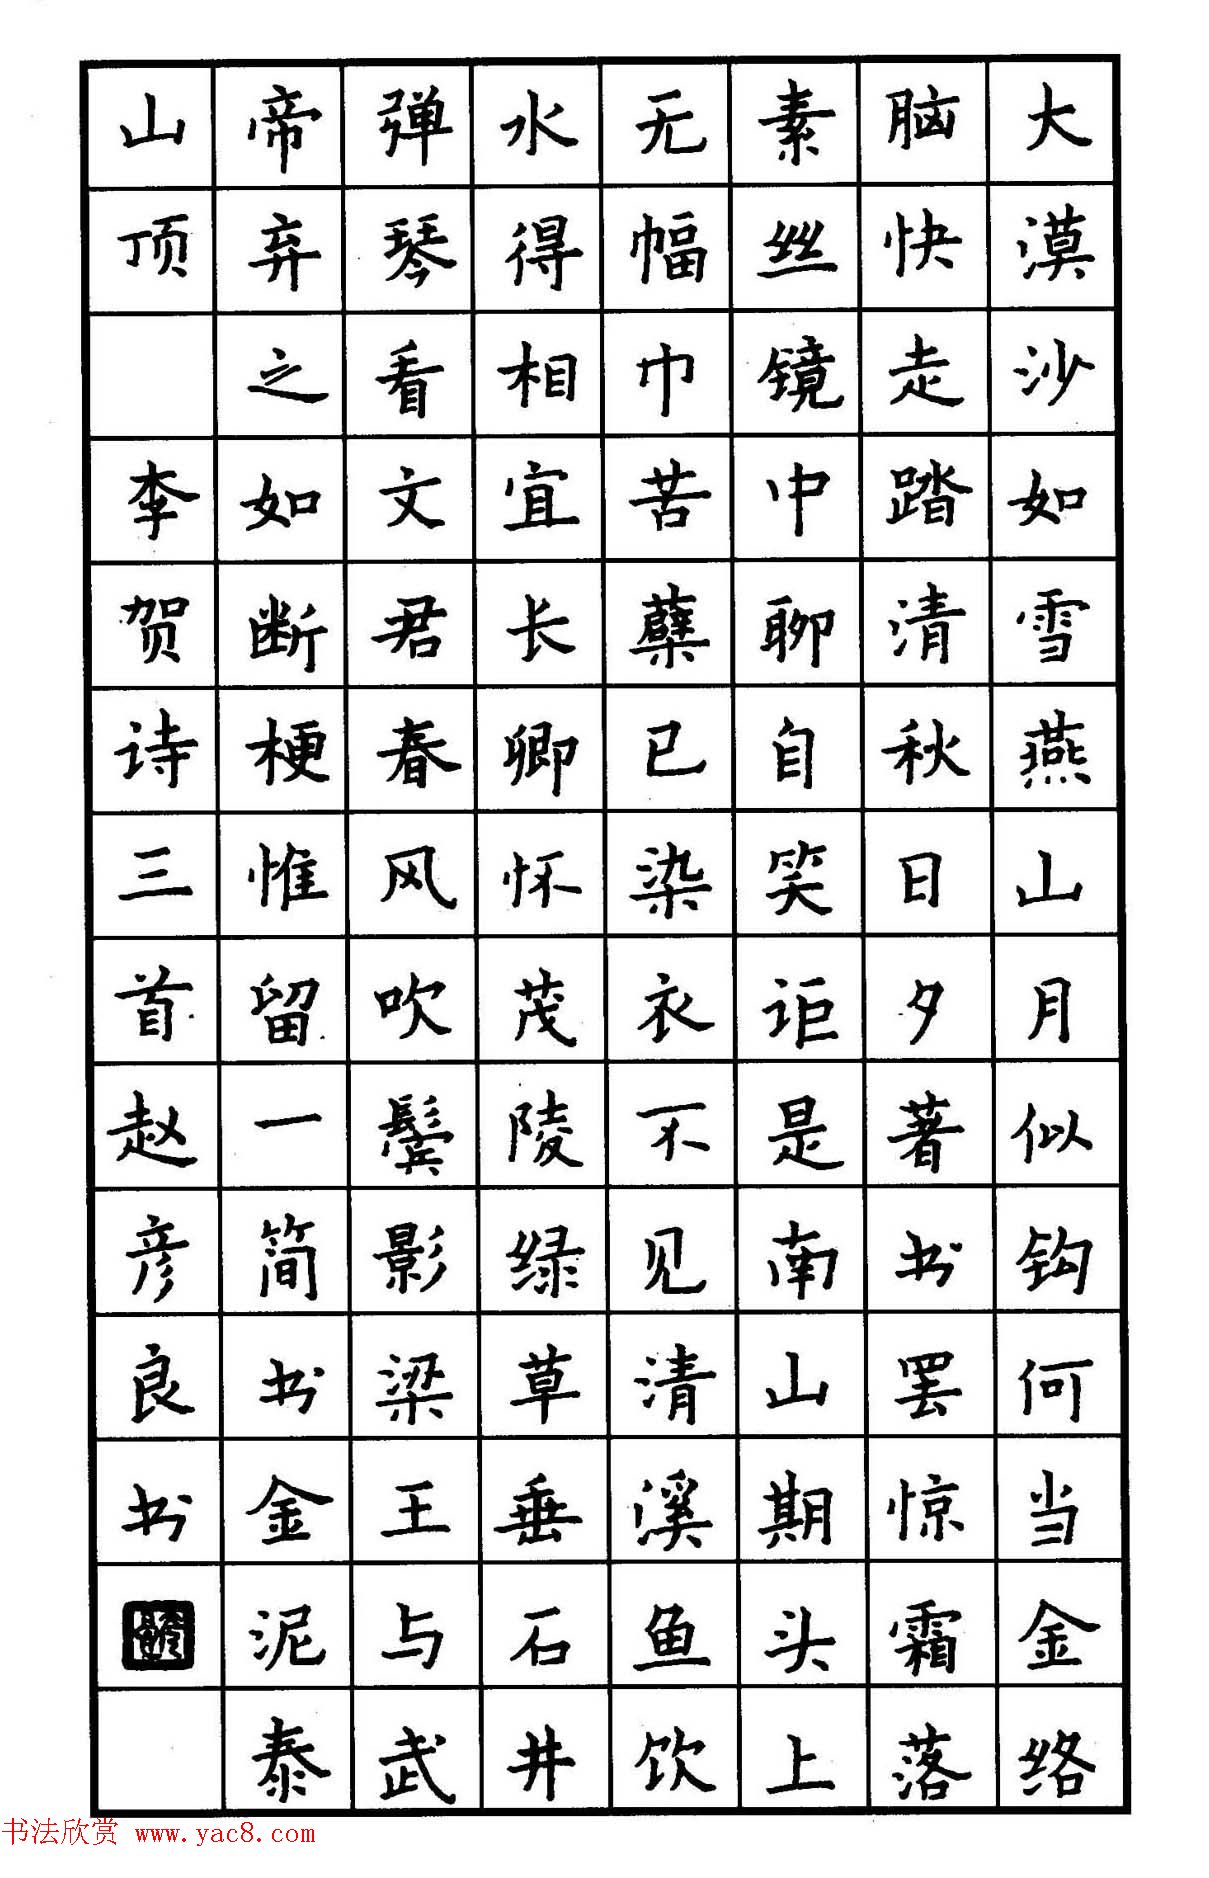 大漠沙如雪燕山月似钩何当金络
脑快走踏清秋日夕著书罢惊霜落
素丝镜中聊自笑讵是南山期头上
无幅巾苦蘖已染衣不见清溪鱼饮
水得相宜长卿怀茂陵绿草垂石井
弹琴看文君春风吹鬓影梁王与武
帝弃之如断梗惟留一简书金泥泰
山顶 李贺诗三首赵彦良书
书法欣赏 www.yac8.com